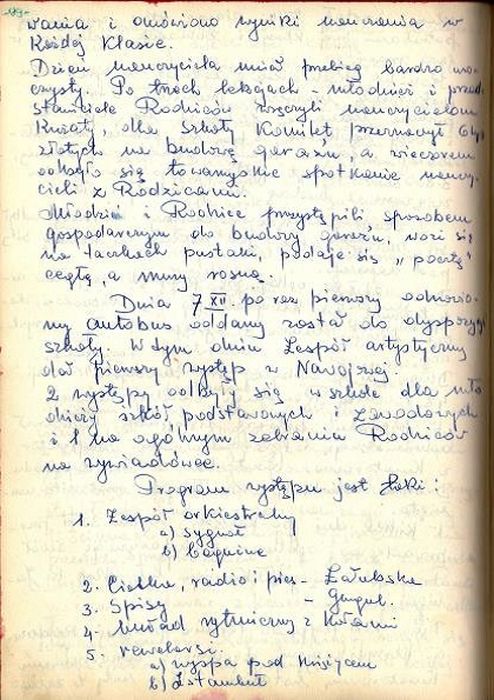 -99-
wania i omówiono wyniki nauczania w
każdej klasie.
Dzień nauczyciela miał przebieg bardzo uro-
czysty. Po trzech lekcjach - młodzież i przed-
stawiciele Rodziców wręczyli nauczycielom
kwiaty, dla szkoły Komitet przeznaczył
złotych na budowę garażu, a wieczorem
odbyło się towarzyskie spotkanie nauczy-
cieli z Rodzicami.
Młodzież i Rodzice przystąpili sposobem
gospodarczym do budowy garażu, wozi się
na taczkach pustaki, podaje się "pocztą"
cegłę, a mury rosną.
Dnia 7 XII. po raz pierwszy odnowio-
ny autobus oddany został do dyspozycji
szkoły. W tym dniu Zespół artystyczny
dał pierwszy występ w Nawojowej.
2 występy odbyły się w szkole dla mło
dzieży szkół podstawowych i zawodowych
i 1 na ogólnym zebraniu Rodziców
na wywiadówce.
Program występu jest taki:
1. Zespół orkiestralny
a) sygnał
b)
2. Ciotka, radio i pies - Załubska
3. Spisy - Gengul.
4. układ rytmiczny z kołami
5. rewelersi.
a) wyspa pod księżycem
b) Istambuł